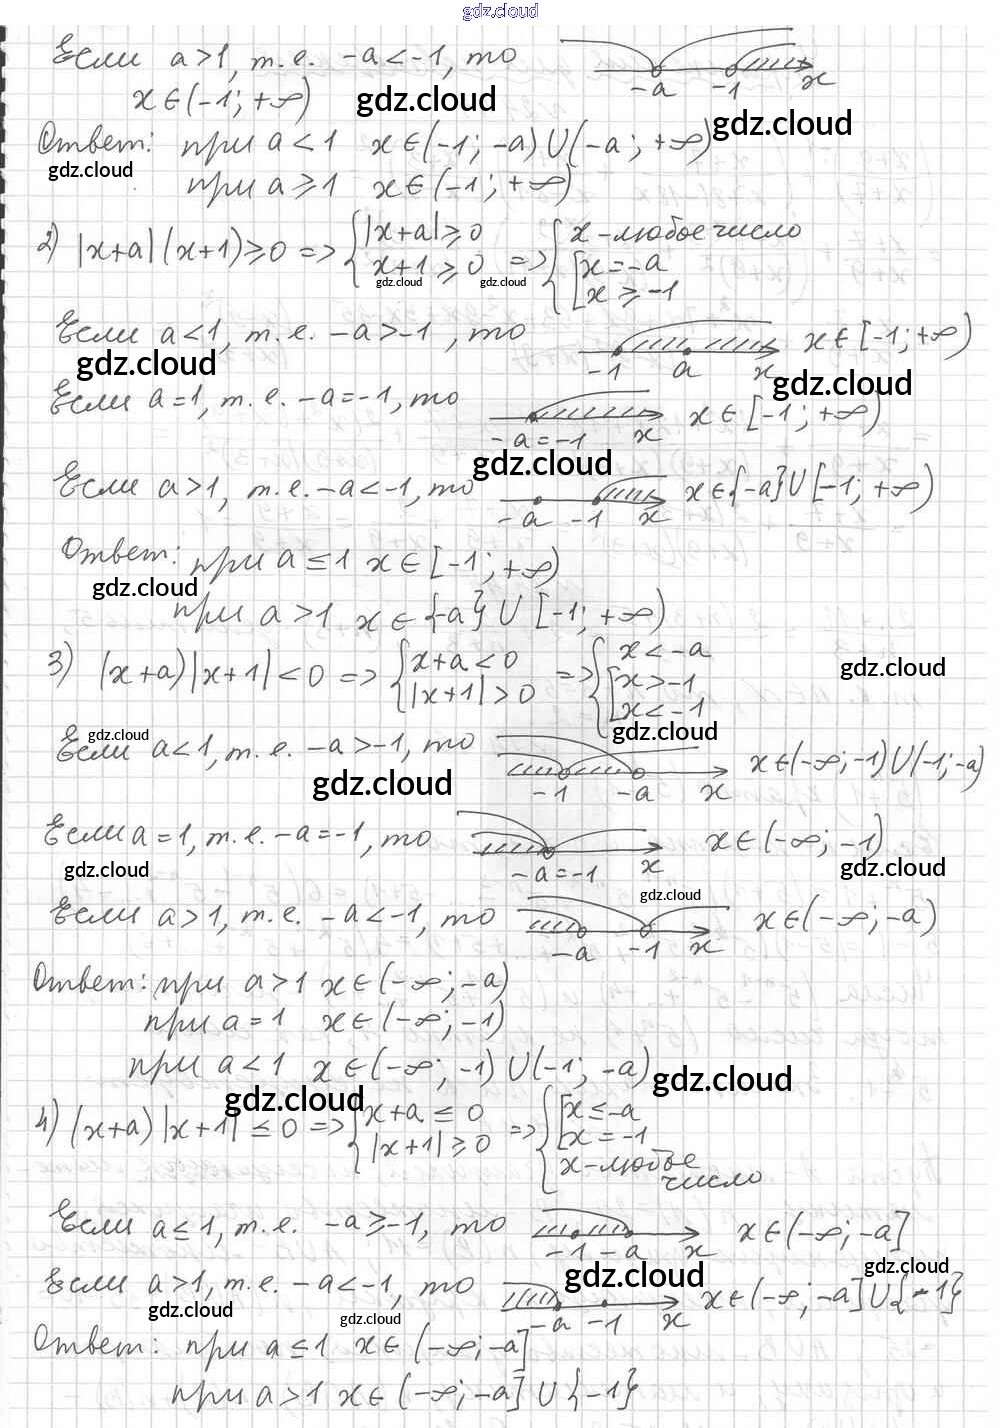 gdz.cloud
Если a>1, т.е. -a<-1, то
-a -1 x
x∈(-1; +∞)
gdz.cloud
gdz.cloud
Ответ: при a<1 x∈(-1; -a)∪(-a; +∞)
gdz.cloud
при a≥1 x∈(-1; +∞)
2) |x+a|(x+1)≥0 => { |x+a|≥0 => { x-любое число
x+1≥0 [ x=-a
gdz.cloud gdz.cloud
x≥-1
Если a<1, т.е. -a>-1, то x∈[-1; +∞)
-1 a x
gdz.cloud gdz.cloud
Если a=1, т.е. -a=-1, то x∈[-1; +∞)
-a=-1 x
gdz.cloud
Если a>1, т.е. -a<-1, то x∈{-a}∪[-1; +∞)
-a -1 x
Ответ: при a≤1 x∈[-1; +∞)
gdz.cloud
при a>1 x∈{-a}∪[-1; +∞)
3) (x+a)|x+1|<0 => { x+a<0 => { x<-a
|x+1|>0 [ x>-1
gdz.cloud
x<-1
gdz.cloud gdz.cloud
Если a<1, т.е. -a>-1, то x∈(-∞; -1)∪(-1; -a)
-1 -a x
gdz.cloud
Если a=1, т.е. -a=-1, то x∈(-∞; -1)
-a=-1 x
gdz.cloud gdz.cloud
gdz.cloud
Если a>1, т.е. -a<-1, то x∈(-∞; -a)
-a -1 x
Ответ: при a>1 x∈(-∞; -a)
при a=1 x∈(-∞; -1)
при a<1 x∈(-∞; -1)∪(-1; -a)
gdz.cloud gdz.cloud
4) (x+a)|x+1|≤0 => { x+a≤0 => { [ x≤-a
|x+1|≥0 x=-1
x-любое
число
Если a≤1, т.е. -a≥-1, то x∈(-∞; -a]
-1 -a x
gdz.cloud gdz.cloud
Если a>1, т.е. -a<-1, то x∈(-∞; -a]∪{-1}
-a -1 x
gdz.cloud gdz.cloud
Ответ: при a≤1 x∈(-∞; -a]
при a>1 x∈(-∞; -a]∪{-1}